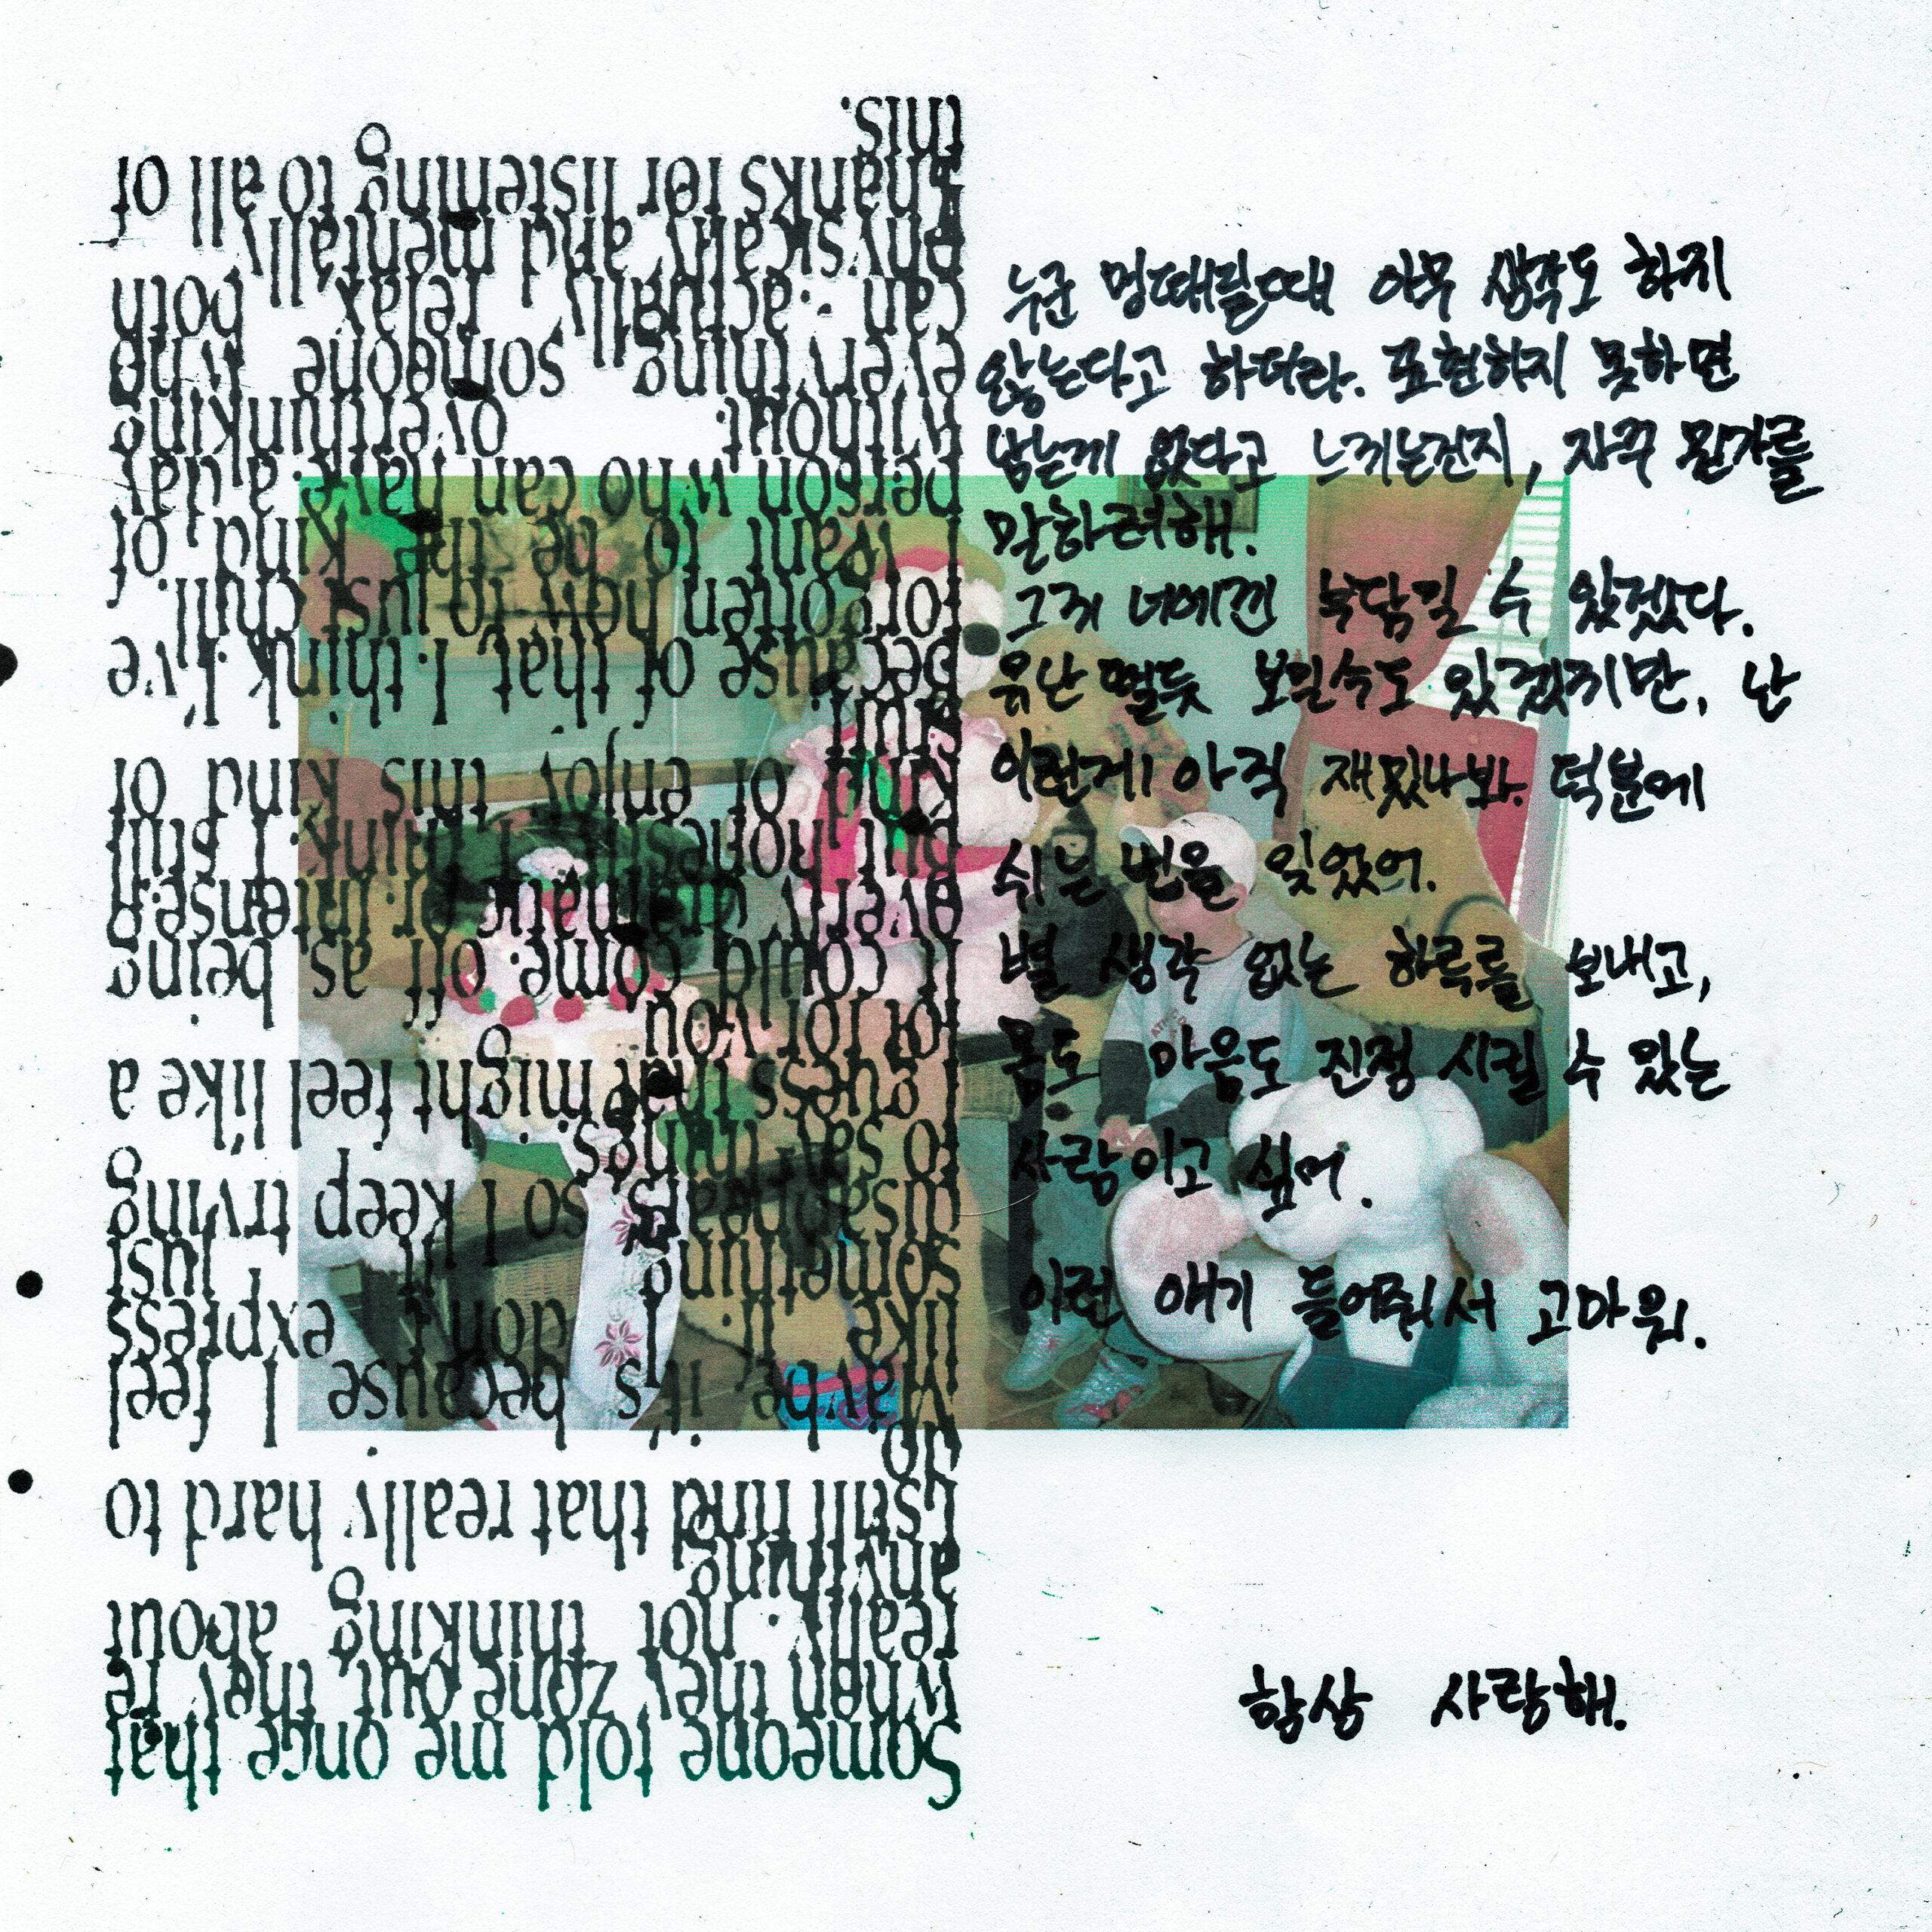 Someone told me once that
when they zone out, they're
really not thinking about
anything.
I still find that really hard to
do.
Maybe it's because I feel
like if I don't express
something, it just
disappears, so I keep trying
to say things.
I guess that might feel like a
lot for you
It could come off as being
overly dramatic or intense,
but honestly, I think I still
kind of enjoy this kind of
stuff.
Because of that, I think I've
forgotten how to just chill.
I want to be the kind of
person who can have a day
without overthinking
everything someone who
can actually relax both
physically and mentally
Thanks for listening to all of
this.
누군 멍때릴때 아무 생각도 하지
않는다고 하더라. 표현하지 못하면
남는게 없다고 느끼는건지, 자꾸 뭔가를
말하려해.
그게 너에겐 부담일 수 있겠다.
유난 떨듯 보일수도 있겠지만, 난
이런게 아직 재밌나봐. 덕분에
쉬는 법을 잊었어.
별 생각 없는 하루를 보내고,
몸도 마음도 진정 시킬 수 있는
사람이고 싶어.
이런 얘기 들어줘서 고마워.
항상 사랑해.